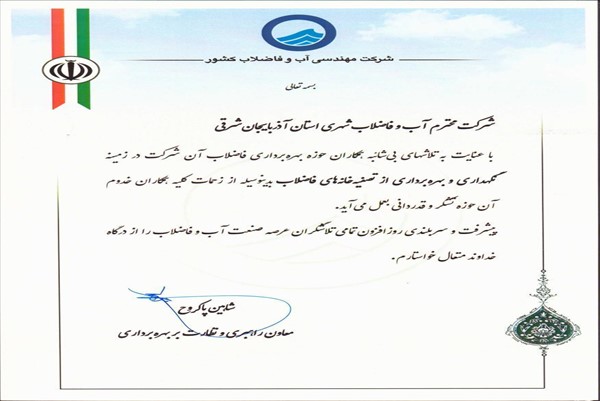 شرکت مهندسی آب و فاضلاب کشور
بسمه تعالی
شرکت محترم آب و فاضلاب شهری استان آذربایجان شرقی
با عنایت به تلاشهای بی‌شائبه همکاران حوزه بهره‌برداری فاضلاب آن شرکت در زمینه
نگهداری و بهره‌برداری از تصفیه‌خانه‌های فاضلاب بدینوسیله از زحمات کلیه همکاران خدوم
آن حوزه تشکر و قدردانی بعمل می‌آید.
پیشرفت و سربلندی روزافزون تمامی تلاشگران عرصه صنعت آب و فاضلاب را از درگاه
خداوند متعال خواستارم.
شاهین پاکروح
معاون راهبری و نظارت بر بهره‌برداری